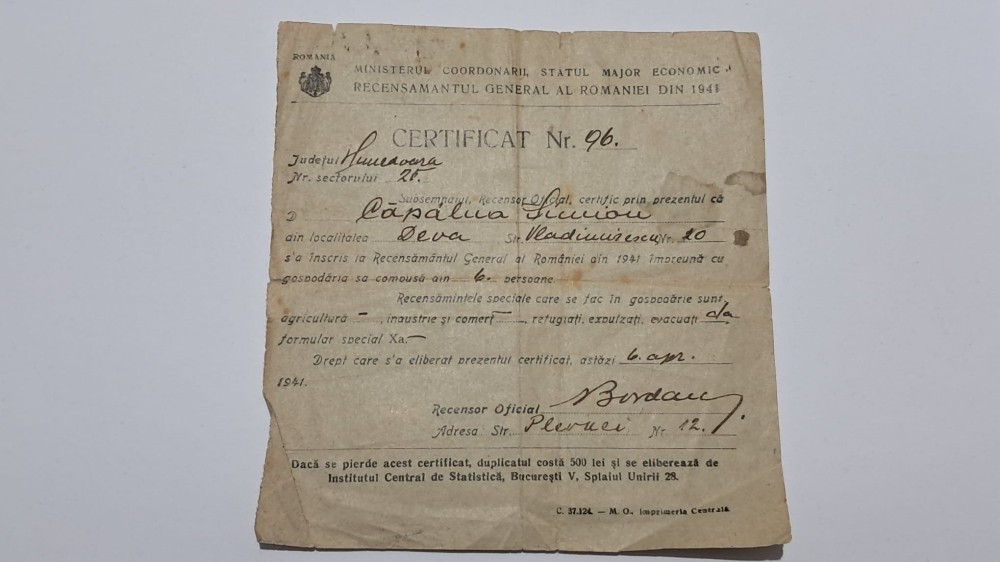 ROMANIA
MINISTERUL COORDONARII, STATUL MAJOR ECONOMIC
RECENSAMANTUL GENERAL AL ROMANIEI DIN 1941
CERTIFICAT Nr. 96.
Județul Hunedoara
Nr. sectorului 25.
Subsemnatul, Recensor Oficial, certific prin prezentul că
D Căpâlna Simion
din localitatea Deva Str. Vladimirescu Nr. 20
s'a înscris la Recensământul General al României din 1941 împreună cu
gospodăria sa compusă din 6. persoane.
Recensămintele speciale care se fac în gospodărie sunt,
agricultură —, industrie și comerț —, refugiați, expulzați, evacuați da,
formular special Xa. —
Drept care s'a eliberat prezentul certificat, astăzi 6. apr.
1941.
Recensor Oficial Bordan
Adresa Str. Plevnei Nr 12.
Dacă se pierde acest certificat, duplicatul costă 500 lei și se eliberează de
Institutul Central de Statistică, București V, Splaiul Unirii 28.
C. 37.124. — M. O., Imprimeria Centrală